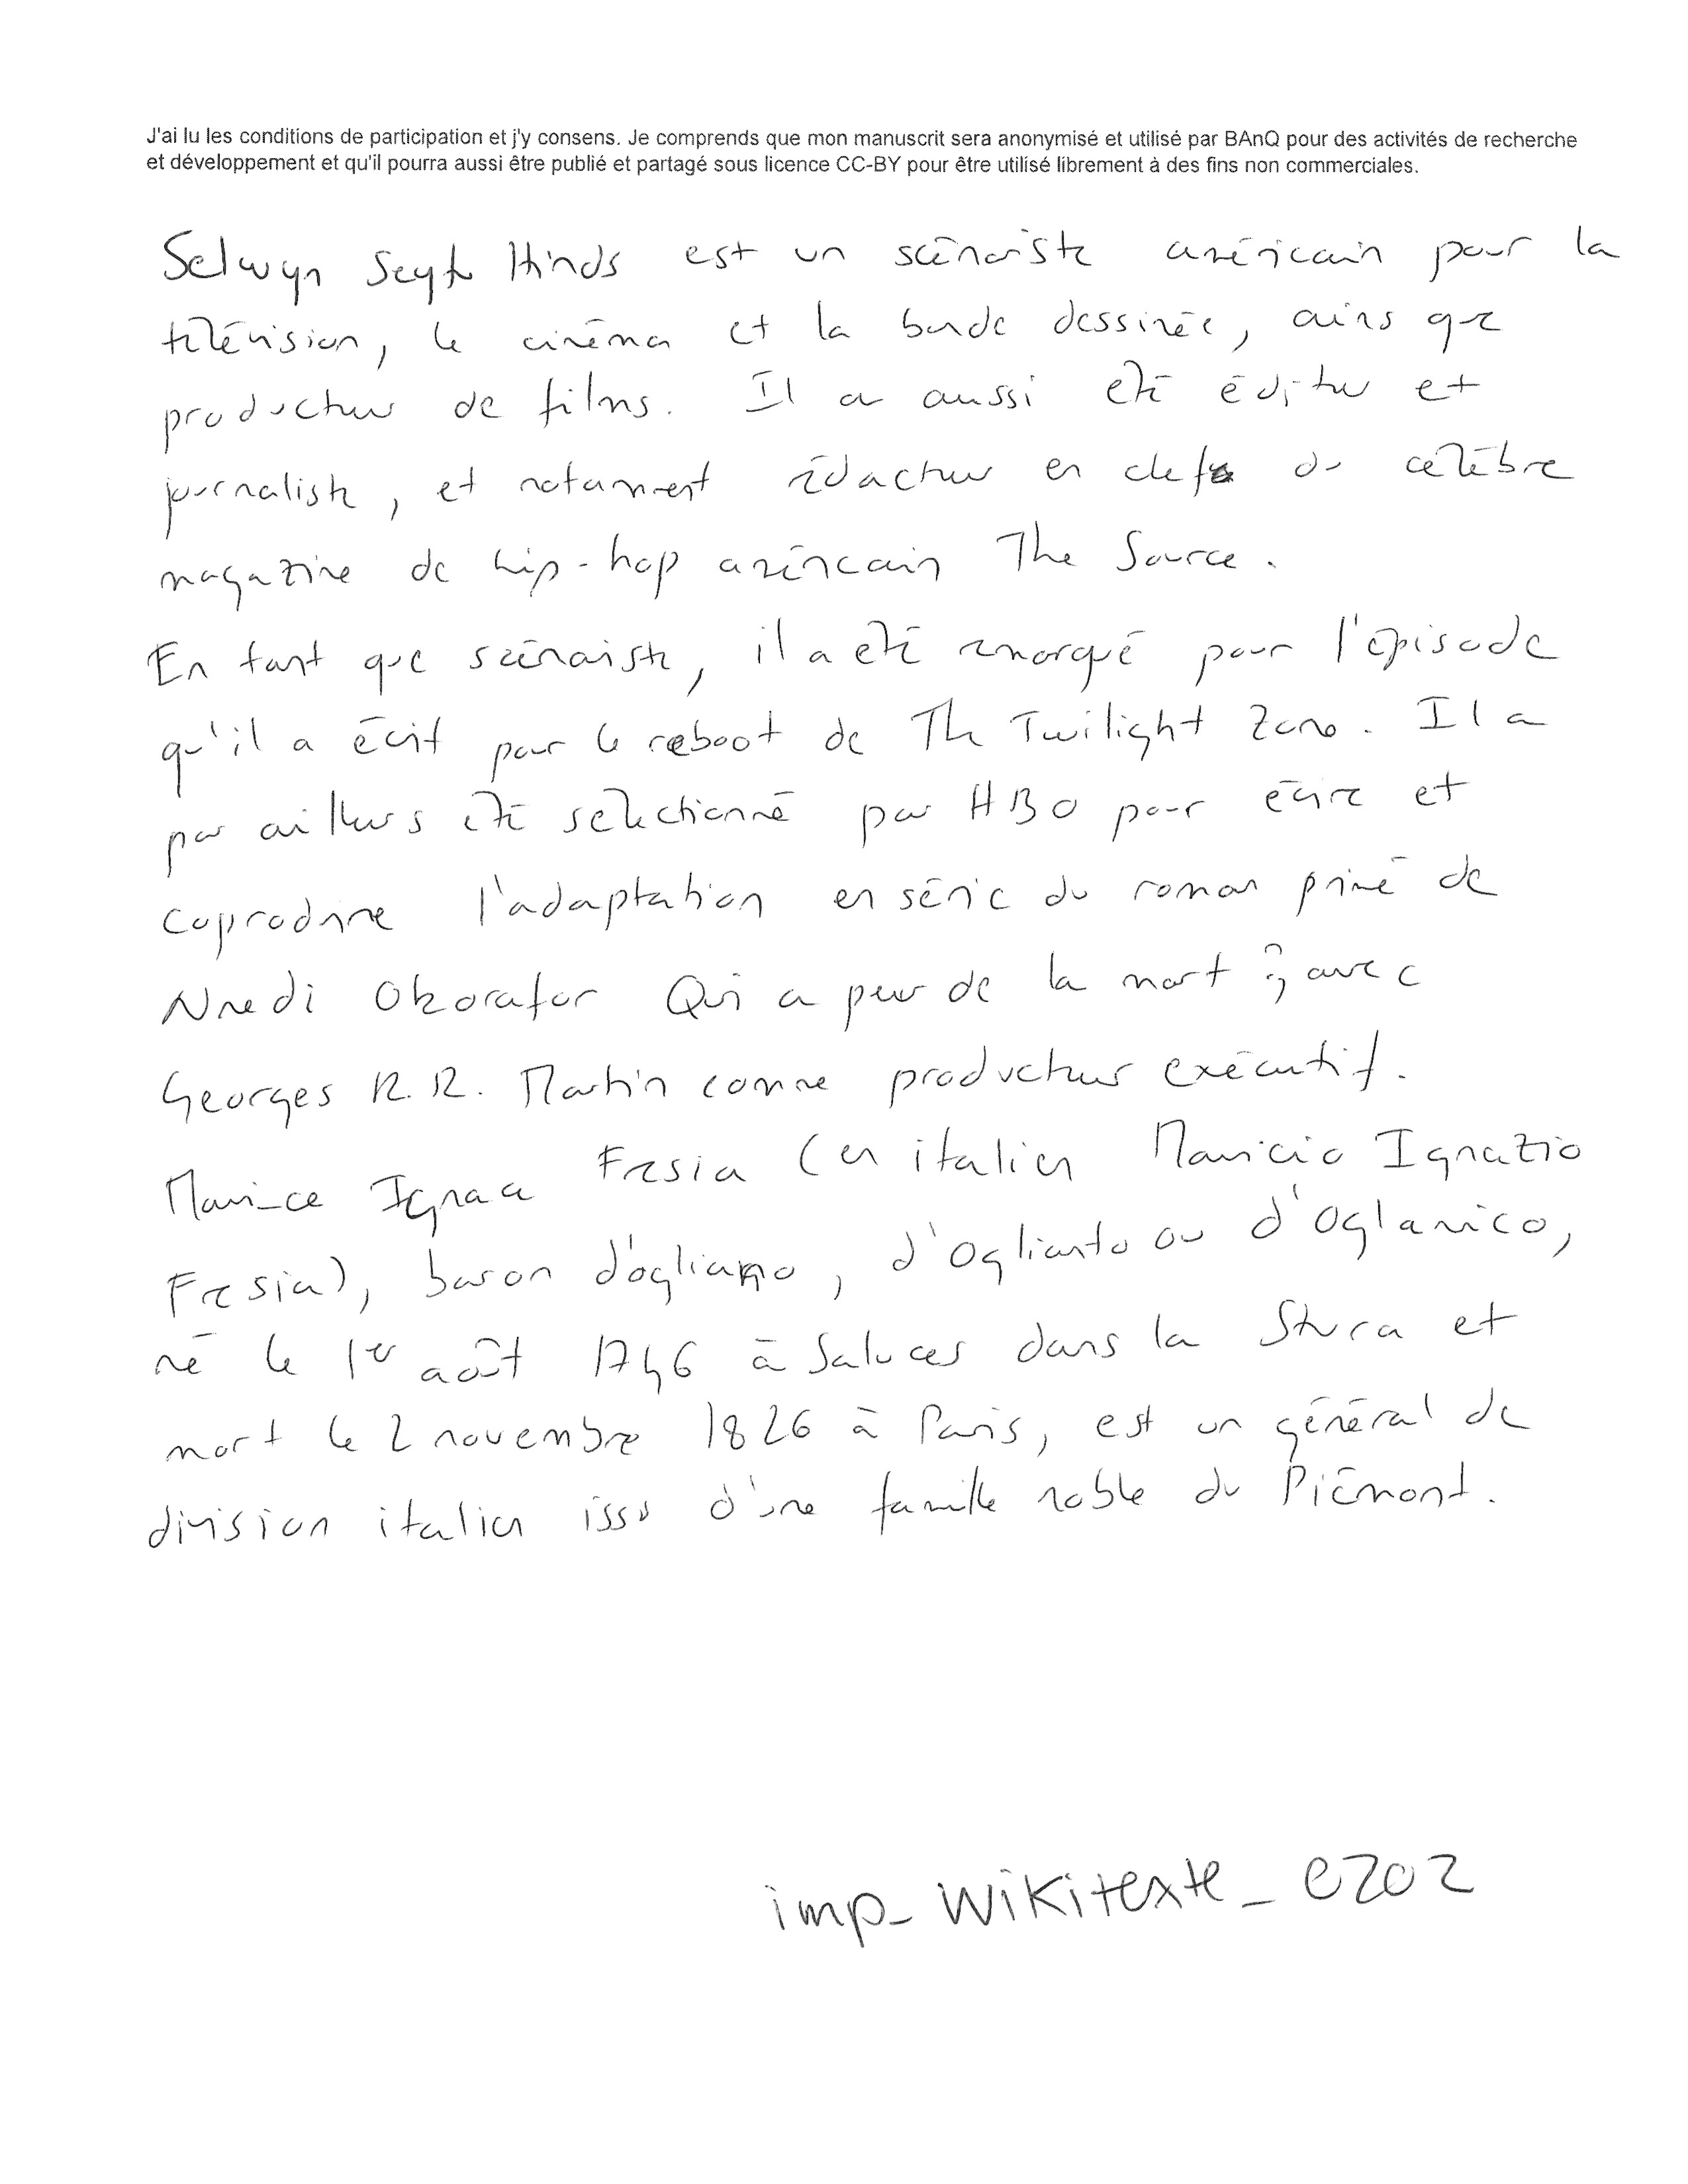 J'ai lu les conditions de participation et j'y consens. Je comprends que mon manuscrit sera anonymisé et utilisé par BAnQ pour des activités de recherche
et développement et qu'il pourra aussi être publié et partagé sous licence CC-BY pour être utilisé librement à des fins non commerciales.
Selwyn Seyfu Hinds est un scénariste américain pour la
télévision, le cinéma et la bande dessinée, ains que
producteur de films. Il a aussi été éditeur et
journaliste, et notamment rédacteur en chef du célèbre
magazine de hip-hop américain The Source.
En tant que scénariste, il a été remarqué pour l'épisode
qu'il a écrit pour le reboot de The Twilight Zone. Il a
par ailleurs été sélectionné par HBO pour écrire et
coproduire l'adaptation en série du roman primé de
Nnedi Okorafor Qui a peur de la mort ?, avec
Georges R.R. Martin comme producteur exécutif.
Maurice Ignace Fresia (en italien Mauricio Ignazio
Fresia), baron d'ogliano, d'Oglianto ou d'Oglanico,
né le 1er août 1746 à Saluces dans la Stura et
mort le 2 novembre 1826 à Paris, est un général de
division italien issu d'une famille noble du Piémont.
imp_wikitexte_e202